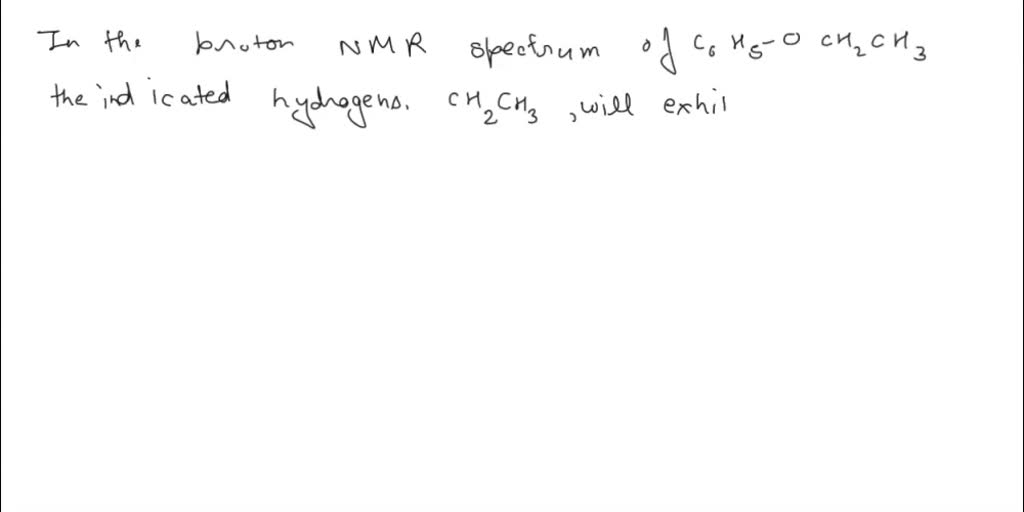 In the broton NMR spectrum of C₆H₅-O CH₂CH₃
the indicated hydrogens. CH₂CH₃, will exhi